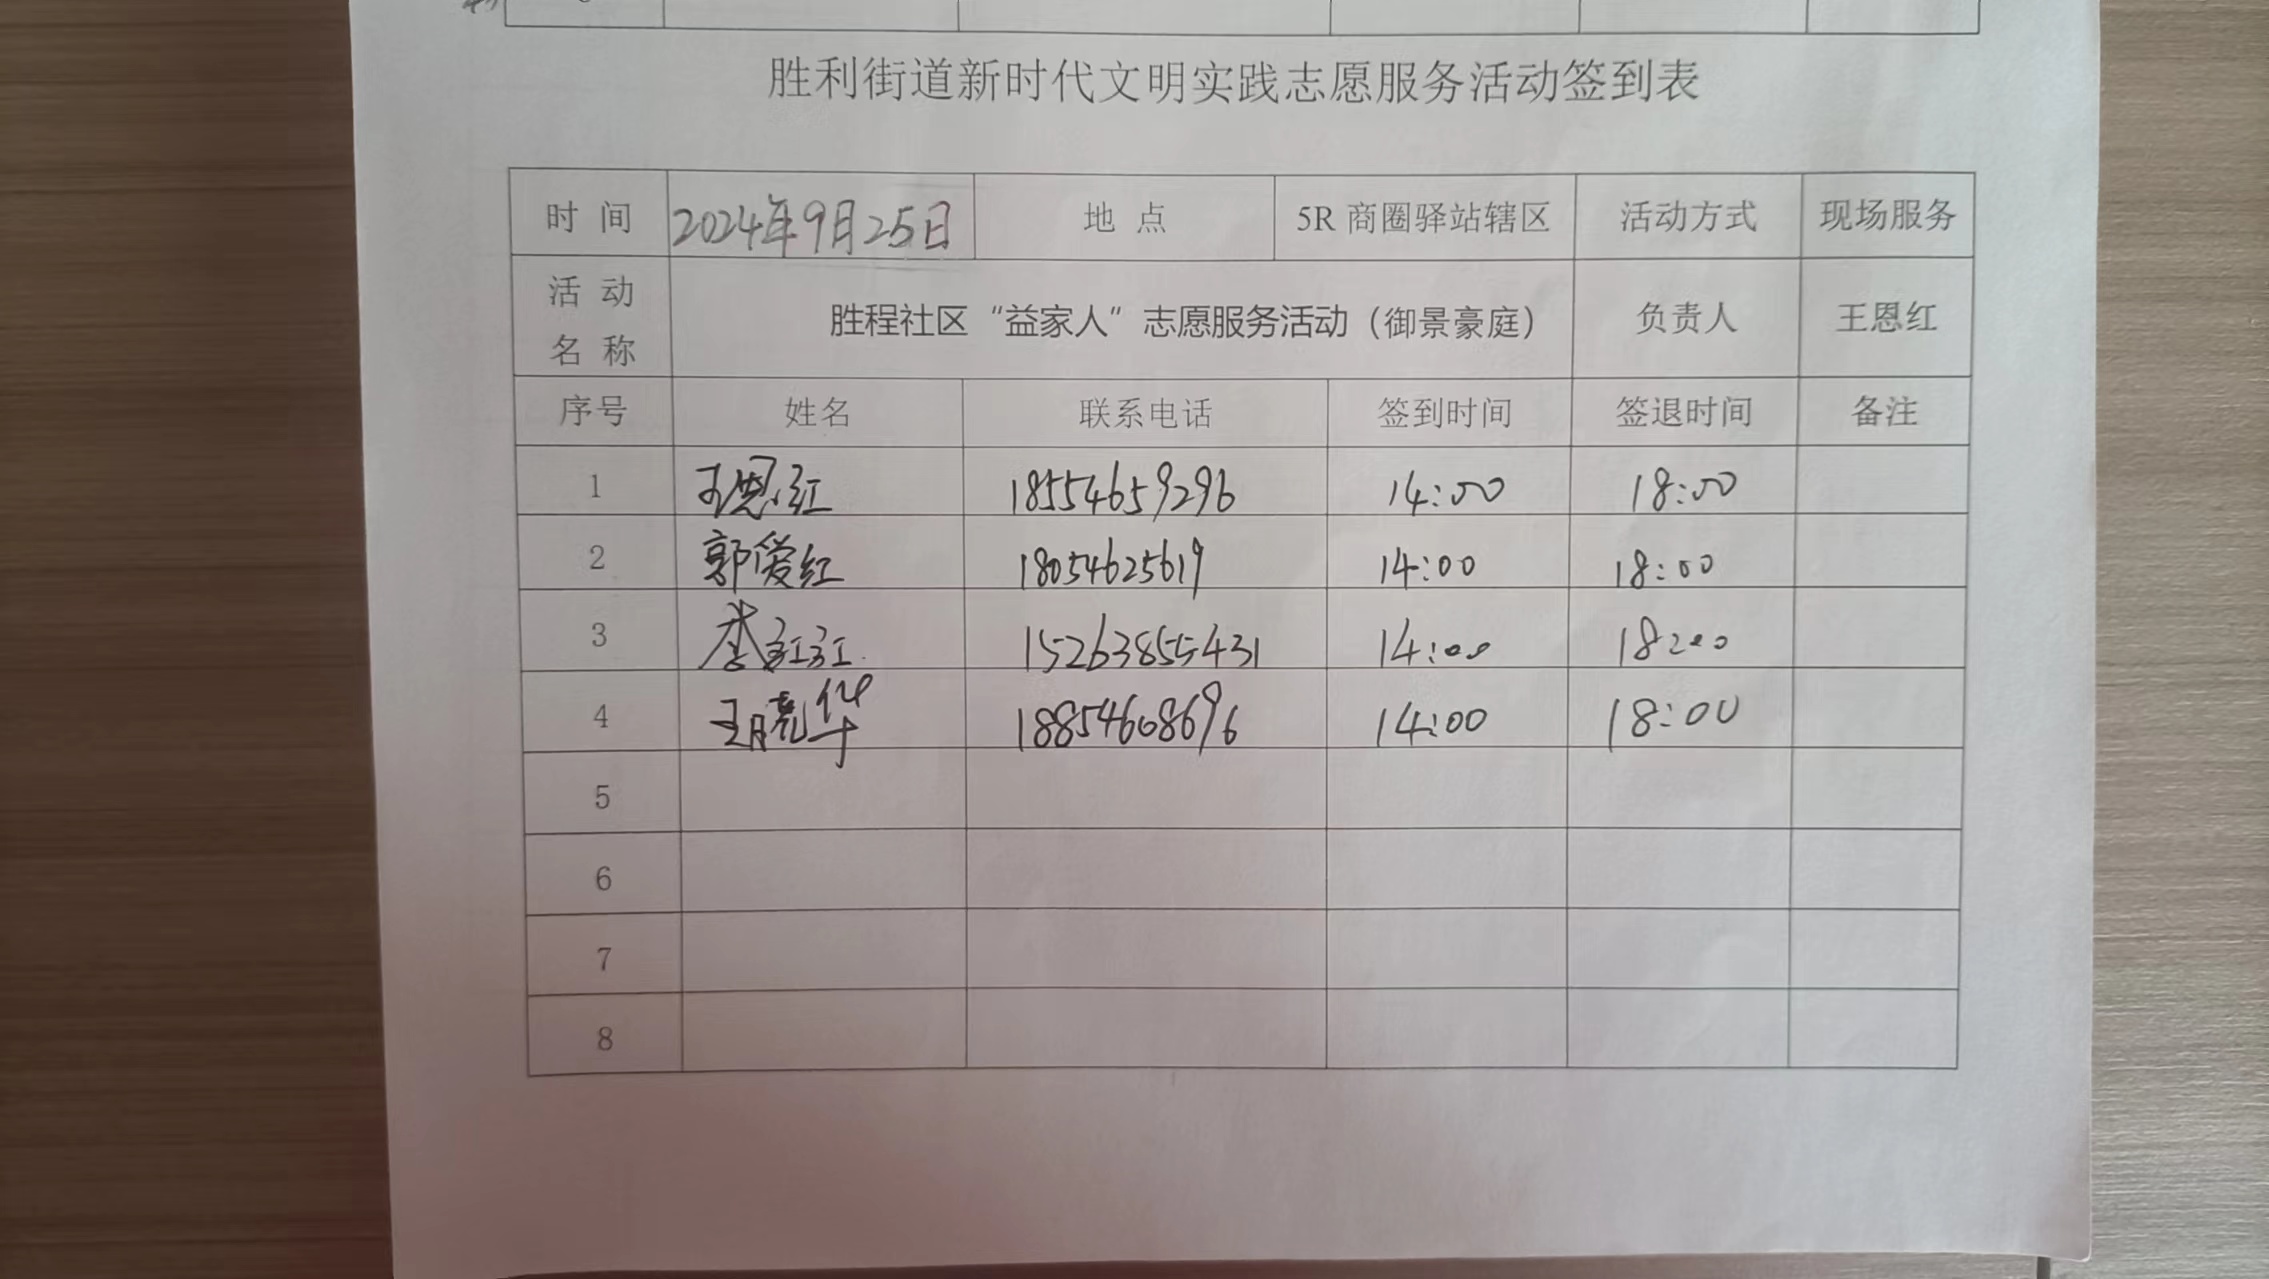 胜利街道新时代文明实践志愿服务活动签到表
时 间 2024年9月25日 地 点 5R 商圈驿站辖区 活动方式 现场服务
活 动
名 称 胜程社区“益家人”志愿服务活动（御景豪庭） 负责人 王恩红
序号 姓名 联系电话 签到时间 签退时间 备注
1 王恩红 18554659296 14:00 18:00
2 郭爱红 18054625619 14:00 18:00
3 李红红 15263855431 14:00 18:00
4 18854608696 14:00 18:00
5
6
7
8